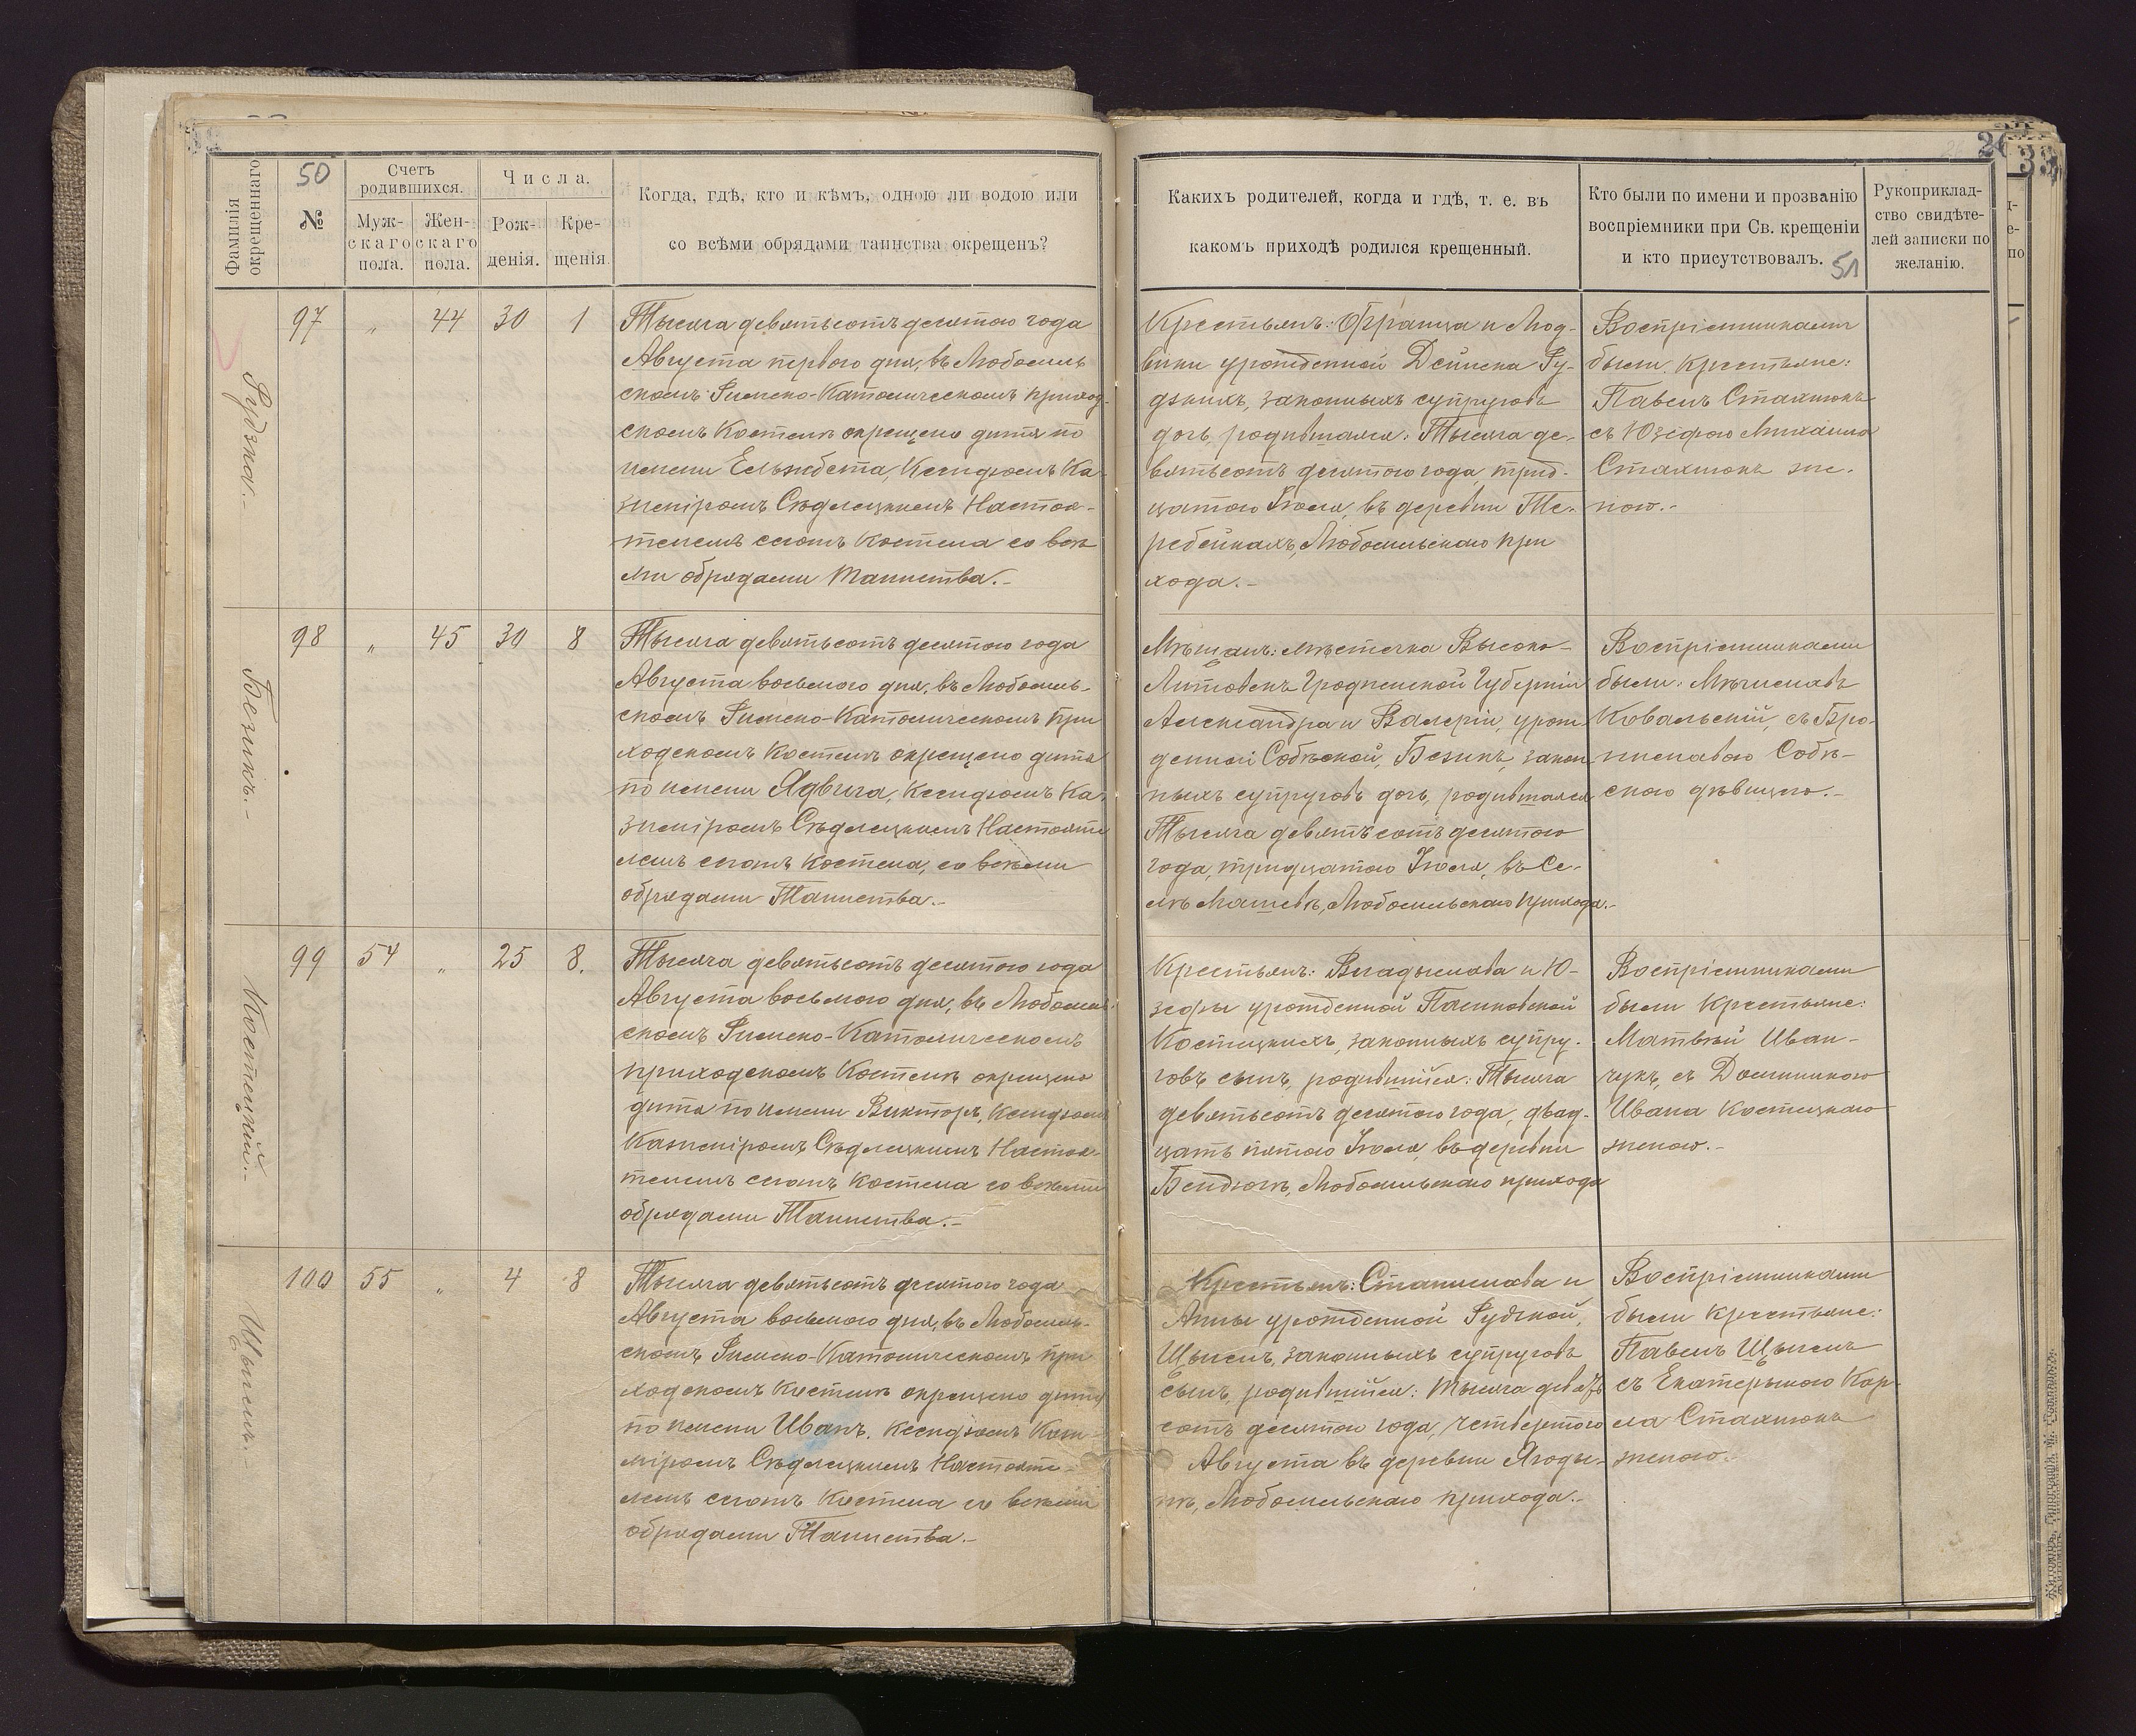 50
51
Фамилія
окрещеннаго
№
Счетъ
родившихся.
Муж-
скаго
пола.
Жен-
скаго
пола.
Числа.
Рож-
денія.
Кре-
щенія.
Когда, гдѣ, кто и кѣмъ, одною ли водою или
со всѣми обрядами таинства окрещенъ?
Какихъ родителей, когда и гдѣ, т. е. въ
какомъ приходѣ родился крещенный.
Кто были по имени и прозванію
воспріемники при Св. крещеніи
и кто присутствовалъ.
Рукоприклад-
ство свидѣте-
лей записки по
желанію.
Рудзка.-
97 " 44 30 1
Тысяча девятьсотъ десятого года
Августа первого дня, въ Любомль
скомъ Римско-Католическомъ приход-
скомъ Костелѣ окрещено дитя по
имени Ельжбета, Ксендзомъ Ка-
зимiромъ Сѣдлецкимъ Настоя-
телемъ сегожъ Костела со всѣ
ми обрядами Таинства.-
Крестьянъ: Франца и Люд-
вики урожденной Дейнека Ру-
дзкихъ, законныхъ супруговъ
дочь, родившаяся: Тысяча де-
вятьсотъ десятого года, трид-
цатого Iюля, въ деревни Те-
ребейкахъ, Любомльскаго при
хода.-
Воспріемниками
были крестьяне:
Павелъ Стахнюкъ
съ Юзефою Михаила
Стахнюкъ же-
ною.-
Безикъ.-
98 " 45 30 8
Тысяча девятьсотъ десятого года
Августа восьмого дня, въ Любомль-
скомъ Римско-Католическомъ при
ходскомъ Костелѣ окрещено дитя
по имени Ядвига, Ксендзомъ Ка-
зимiромъ Сѣдлецкимъ Настояте
лемъ сегожъ Костела, со всѣми
обрядами Таинства.-
Мѣщанъ: мѣстечка Высоко-
Литовскъ Гродненской Губерніи
Александра и Валеріи, урож
денной Собѣской, Безикъ, закон
ныхъ супруговъ дочь, родившаяся
Тысяча девятьсотъ десятого
года, тридцатого Iюля, въ Се-
лѣ Машевѣ, Любомльскаго прихода.-
Воспріемниками
были: Мѣчиславъ
Ковальскій, съ Бро-
ниславою Собѣ-
скою дѣвицею.-
Костецкій.-
99 54 " 25 8.
Тысяча девятьсотъ десятого года
Августа восьмого дня, въ Любомль
скомъ Римско-Католическомъ
приходскомъ Костелѣ окрещено
дитя по имени Викторъ, Ксендзомъ
Казимiромъ Сѣдлецкимъ Настоя-
телемъ сегожъ Костела со всѣми
обрядами Таинства.-
Крестьянъ: Владыслава и Ю-
зефы урожденной Пасиковской
Костецкихъ, законныхъ супру-
говъ сынъ, родившійся: Тысяча
девятьсотъ десятого года, двад-
цать пятого Iюля, въ деревни
Бендюгѣ, Любомльскаго прихода
Воспріемниками
были крестьяне:
Матвѣй Иван-
чукъ, съ Доминикою
Ивана Костецкаго
женою.-
Щысль.-
100 55 " 4 8
Тысяча девятьсотъ десятого года
Августа восьмого дня, въ Любомль-
скомъ Римско-Католическомъ при
ходскомъ Костелѣ окрещено дитя
по имени Иванъ, Ксендзомъ Кази-
мiромъ Сѣдлецкимъ Настояте-
лемъ сегожъ Костела со всѣми
обрядами Таинства.-
Крестьянъ: Станислава и
Анны урожденной Рудзкой,
Щысль, законныхъ супруговъ
сынъ, родившійся: Тысяча девять
сотъ десятого года, четвертого
Августа въ деревни Ягоды-
нѣ, Любомльскаго прихода.-
Воспріемниками
были крестьяне:
Павелъ Щысль
съ Екатерыною Кар-
ла Стахнюкъ
женою.-